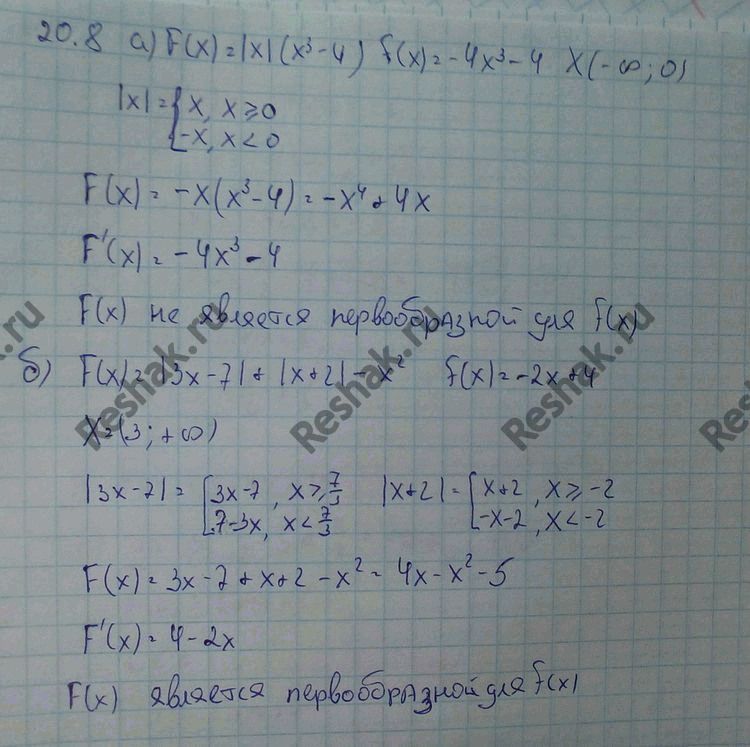 20.8 а) F(x) = |x|(x³-4) f(x) = -4x³-4 X(-∞; 0)
|x| = [x, x ≥ 0
[-x, x < 0
F(x) = -x(x³-4) = -x⁴ + 4x
F'(x) = -4x³-4
F(x) не является первообразной для f(x)
б) F(x) = |3x-7| + |x+2| - x² f(x) = -2x+4
X = (3; +∞)
|3x-7| = [3x-7, x ≥ 7/3 |x+2| = [x+2, x ≥ -2
[7-3x, x < 7/3 [-x-2, x < -2
F(x) = 3x-7+x+2-x² = 4x-x²-5
F'(x) = 4-2x
F(x) является первообразной для f(x)
Reshak.ru
Reshak.ru
Reshak.ru
Reshak.ru